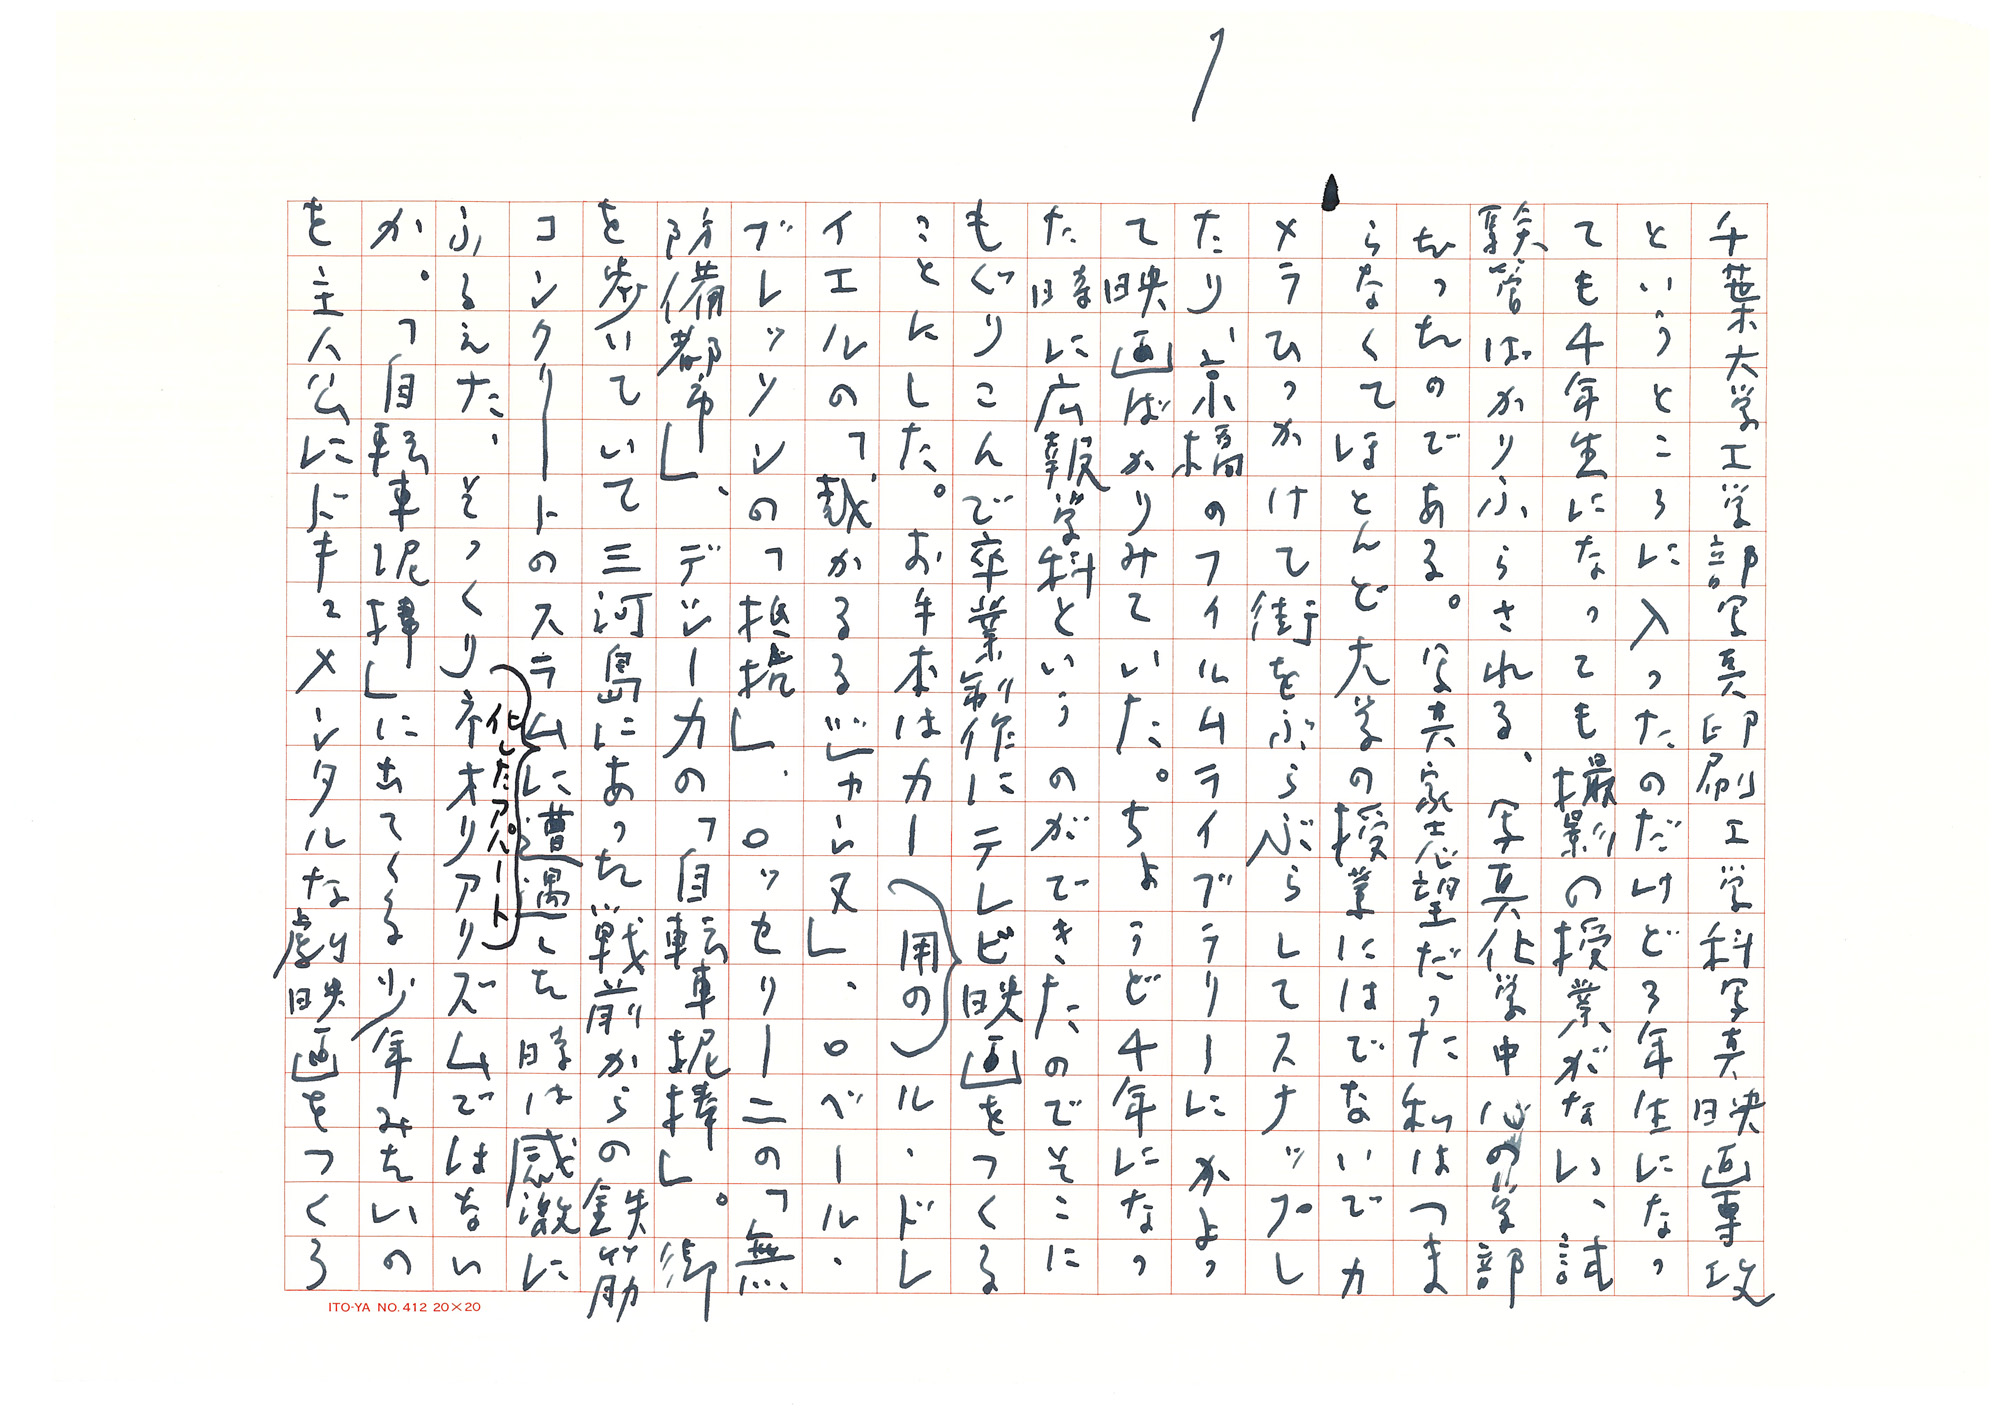 1
千葉大学工学部写真印刷工学科写真映画専攻
というところに入ったのだけど3年生になっ
ても4年生になっても撮影の授業がない、試
験管ばかりふらされる、写真化学中心の学部
だったのである。写真家志望だった私はつま
らなくてほとんど大学の授業にはでないでカ
メラひっかけて街をぶらぶらしてスナップし
たり、京橋のフイルムライブラリーにかよっ
て映画ばかりみていた。ちょうど4年になっ
た時に広報学科というのができたのでそこに
もぐりこんで卒業制作にテレビ映画をつくる
ことにした。お手本はカール・ドレ
用の
イエルの「裁かるゝジャンヌ」、ロベール・
ブレッソンの「抵抗」、ロッセリーニの「無
防備都市」、デシーカの「自転車泥棒」。御
を歩いていて三河島にあった戦前からの鉄筋
コンクリートのスラムに遭遇した時は感激に
化したアパート
ふるえた、そっくりネオリアリズムではない
か。「自転車泥棒」に出てくる少年みたいの
を主人公にドキュメンタルな劇映画をつくろ
ITO-YA NO.412 20×20